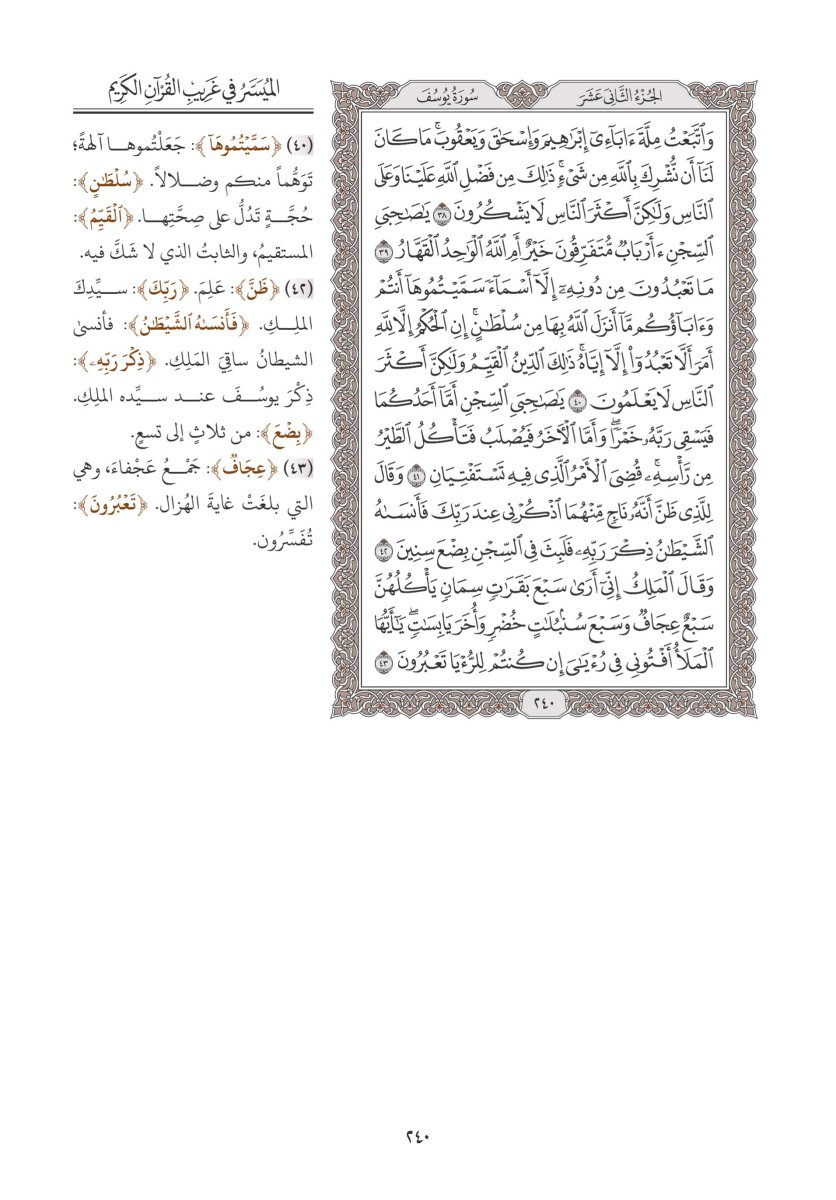 الجُزْءُ الثَّانِي عَشَرَ
سُورَةُ يُوسُفَ
وَٱتَّبَعۡتُ مِلَّةَ ءَابَآءِيٓ إِبۡرَٰهِيمَ وَإِسۡحَٰقَ وَيَعۡقُوبَۚ مَا كَانَ
لَنَآ أَن نُّشۡرِكَ بِٱللَّهِ مِن شَيۡءٖۚ ذَٰلِكَ مِن فَضۡلِ ٱللَّهِ عَلَيۡنَا وَعَلَى
ٱلنَّاسِ وَلَٰكِنَّ أَكۡثَرَ ٱلنَّاسِ لَا يَشۡكُرُونَ ٣٨ يَٰصَٰحِبَيِ
ٱلسِّجۡنِ ءَأَرۡبَابٞ مُّتَفَرِّقُونَ خَيۡرٌ أَمِ ٱللَّهُ ٱلۡوَٰحِدُ ٱلۡقَهَّارُ ٣٩
مَا تَعۡبُدُونَ مِن دُونِهِۦٓ إِلَّآ أَسۡمَآءٗ سَمَّيۡتُمُوهَآ أَنتُمۡ
وَءَابَآؤُكُم مَّآ أَنزَلَ ٱللَّهُ بِهَا مِن سُلۡطَٰنٍۚ إِنِ ٱلۡحُكۡمُ إِلَّا لِلَّهِ
أَمَرَ أَلَّا تَعۡبُدُوٓاْ إِلَّآ إِيَّاهُۚ ذَٰلِكَ ٱلدِّينُ ٱلۡقَيِّمُ وَلَٰكِنَّ أَكۡثَرَ
ٱلنَّاسِ لَا يَعۡلَمُونَ ٤٠ يَٰصَٰحِبَيِ ٱلسِّجۡنِ أَمَّآ أَحَدُكُمَا
فَيَسۡقِي رَبَّهُۥ خَمۡرٗاۖ وَأَمَّا ٱلۡأٓخَرُ فَيُصۡلَبُ فَتَأۡكُلُ ٱلطَّيۡرُ
مِن رَّأۡسِهِۦۚ قُضِيَ ٱلۡأَمۡرُ ٱلَّذِي فِيهِ تَسۡتَفۡتِيَانِ ٤١ وَقَالَ
لِلَّذِي ظَنَّ أَنَّهُۥ نَاجٖ مِّنۡهُمَا ٱذۡكُرۡنِي عِندَ رَبِّكَ فَأَنسَىٰهُ
ٱلشَّيۡطَٰنُ ذِكۡرَ رَبِّهِۦ فَلَبِثَ فِي ٱلسِّجۡنِ بِضۡعَ سِنِينَ ٤٢
وَقَالَ ٱلۡمَلِكُ إِنِّيٓ أَرَىٰ سَبۡعَ بَقَرَٰتٖ سِمَانٖ يَأۡكُلُهُنَّ
سَبۡعٌ عِجَافٞ وَسَبۡعَ سُنۢبُلَٰتٍ خُضۡرٖ وَأُخَرَ يَابِسَٰتٖۖ يَٰٓأَيُّهَا
ٱلۡمَلَأُ أَفۡتُونِي فِي رُءۡيَٰيَ إِن كُنتُمۡ لِلرُّءۡيَا تَعۡبُرُونَ ٤٣
٢٤٠
المُيَسَّرُ في غَرِيبِ القُرْآنِ الكَرِيم
(٤٠) ﴿سَمَّيۡتُمُوهَآ﴾: جَعَلْتُموها آلهةً؛
تَوَهُّماً منكم وضلالاً. ﴿سُلۡطَٰنٍ﴾:
حُجَّةٍ تَدُلُّ على صِحَّتِها. ﴿ٱلۡقَيِّمُ﴾:
المستقيمُ، والثابتُ الذي لا شَكَّ فيه.
(٤٢) ﴿ظَنَّ﴾: عَلِمَ. ﴿رَبِّكَ﴾: سيِّدِكَ
الملِكِ. ﴿فَأَنسَىٰهُ ٱلشَّيۡطَٰنُ﴾: فأنسىٰ
الشيطانُ ساقِيَ المَلِكِ. ﴿ذِكۡرَ رَبِّهِۦ﴾:
ذِكْرَ يوسُفَ عند سيِّده الملِكِ.
﴿بِضۡعَ﴾: من ثلاثٍ إلى تسعٍ.
(٤٣) ﴿عِجَافٞ﴾: جَمْعُ عَجْفاءَ، وهي
التي بلغَتْ غايةَ الهُزال. ﴿تَعۡبُرُونَ﴾:
تُفَسِّرُون.
٢٤٠